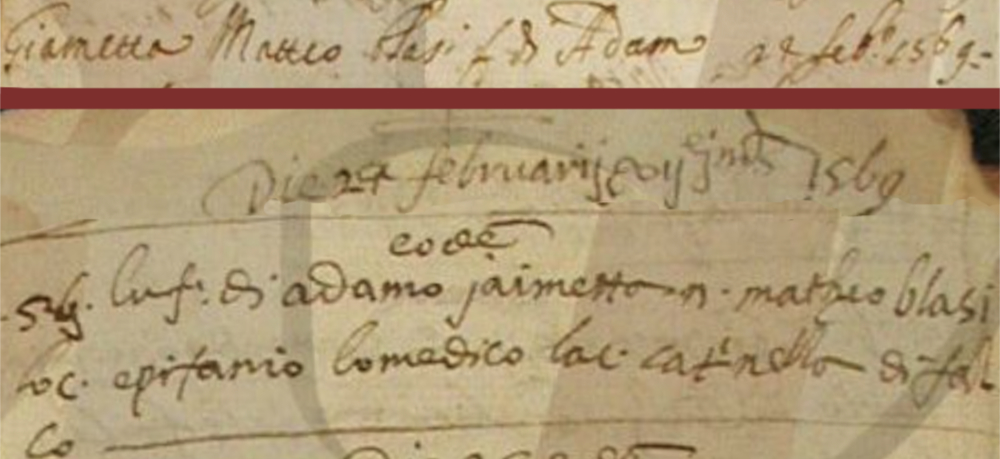 Giametta Matteo Blasi f. di Adam 24 feb.º 1569.
Die 24 februarij xij ejusdē 1569
eodē
lu f. di adamo jaimetta n. matheo blasi
loc. epifanio lomedico la c. catrinella di fal
co